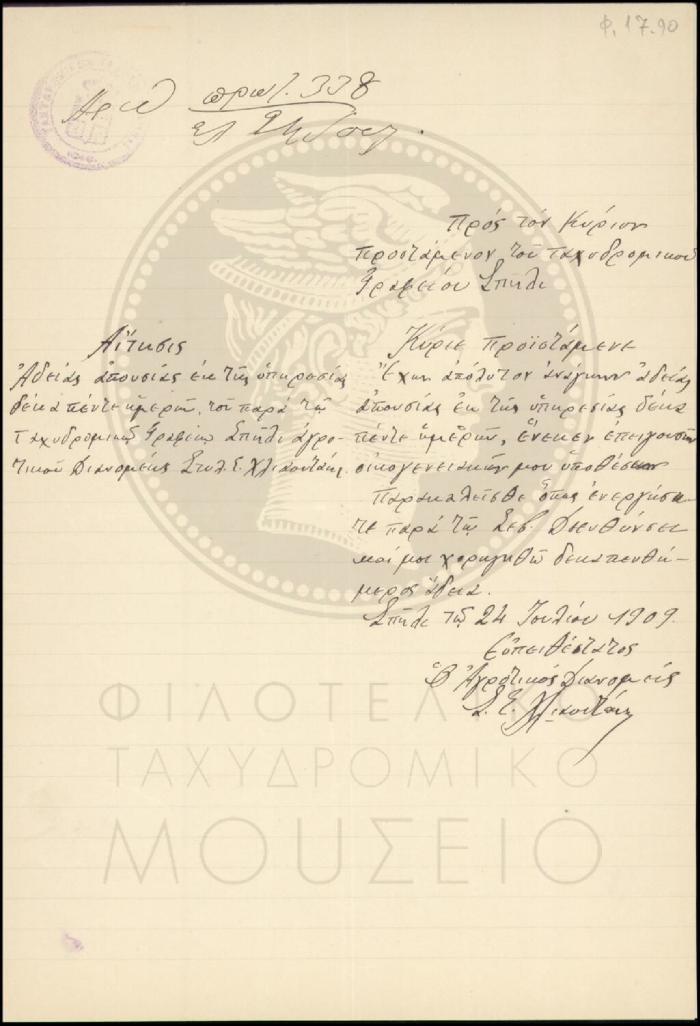 Φ. 17.90
Αριθ. πρωτ. 338
Πρός τόν Κύριον
προϊστάμενον τοῦ ταχυδρομικοῦ
Γραφείου Σπήλι
Αἴτησις
Ἀδείας ἀπουσίας ἐκ τῆς ὑπηρεσίας
δέκα πέντε ἡμερῶν, τοῦ παρά τῷ
Ταχυδρομικῷ Γραφείῳ Σπήλι ἀγρο-
τικοῦ Διανομέως Στυλ. Ε.
Κύριε προϊστάμενε
Ἔχων ἀπόλυτον ἀνάγκην ἀδείας
ἀπουσίας ἐκ τῆς ὑπηρεσίας δέκα
πέντε ἡμερῶν, ἕνεκεν ἐπειγουσῶν
οἰκογενειακῶν μου ὑποθέσεων
Παρακαλεῖσθε ὅπως ἐνεργήση-
τε παρά τῇ Σεβ. Διευθύνσει
καί μοι χορηγηθῇ δεκαπενθή-
μερος ἄδεια.
Σπήλι τῇ 24 Ιουλίου 1909.
Εὐπειθέστατος
Ὁ Ἀγροτικός Διανομεύς
Σ. Ε.
ΦΙΛΟΤΕΛΙΚΟ
ΤΑΧΥΔΡΟΜΙΚΟ
ΜΟΥΣΕΙΟ